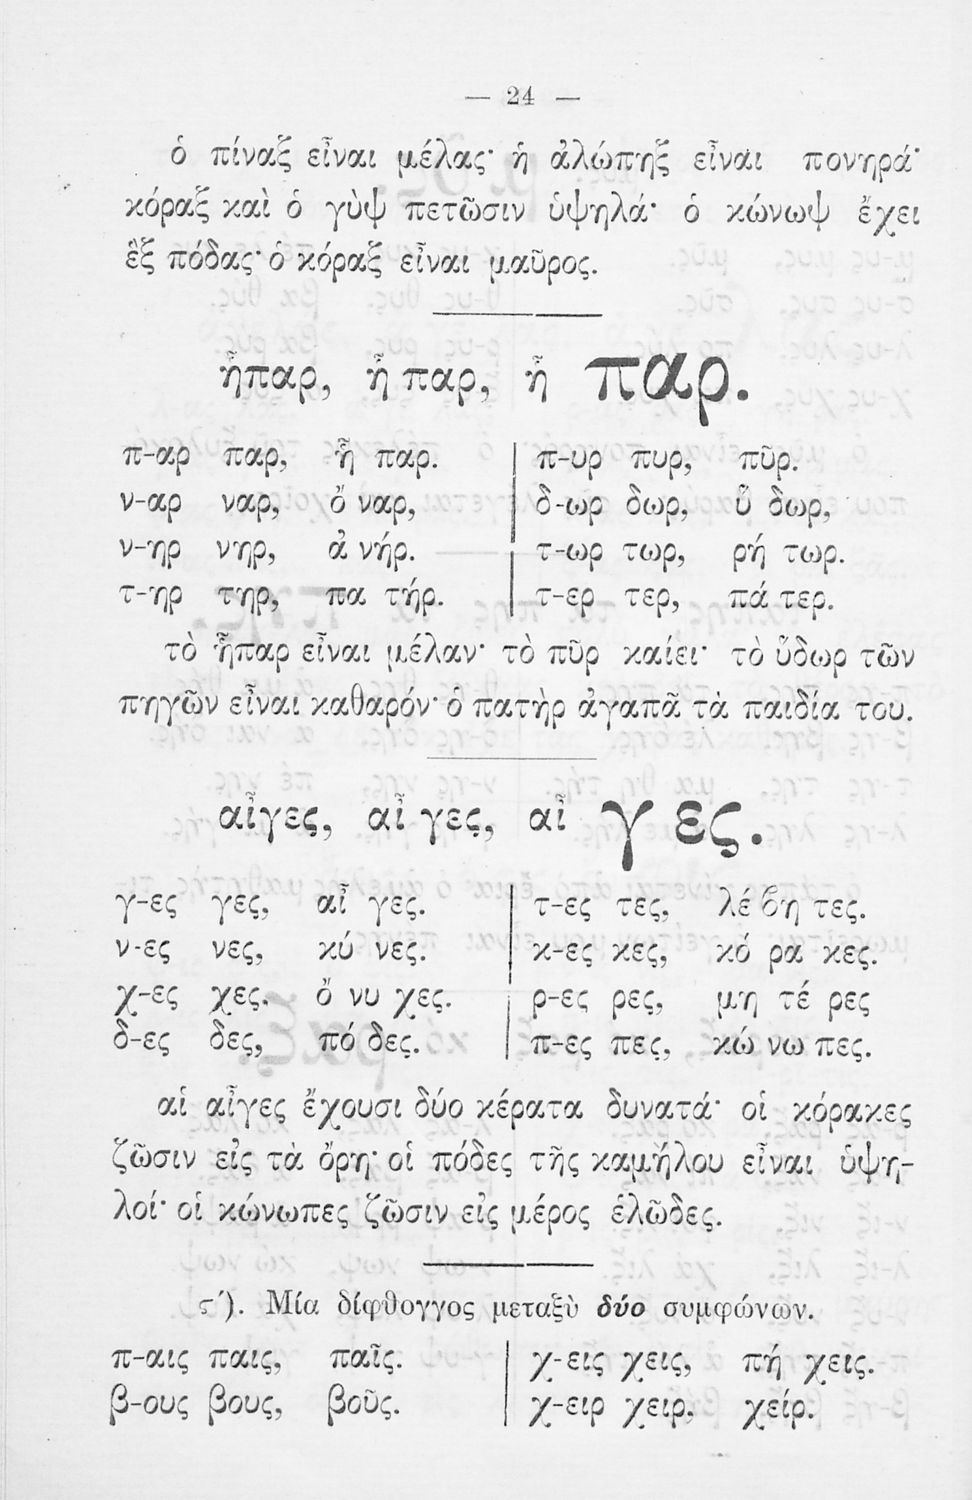 — 24 —
ὁ πίναξ εἶναι μέλας· ἡ ἀλώπηξ εἶναι πονηρά·
κόραξ καὶ ὁ γὺψ πετῶσιν ὑψηλά· ὁ κώνωψ ἔχει
ἓξ πόδας· ὁ κόραξ εἶναι μαῦρος.
ἧπαρ, ἧ παρ, ἧ παρ.
π-αρ παρ, ἧ παρ. π-υρ πυρ, πῦρ.
ν-αρ ναρ, ὄ ναρ, δ-ωρ δωρ, ὕ δωρ,
ν-ηρ νηρ, ἀ νήρ. τ-ωρ τωρ, ρή τωρ.
τ-ηρ τηρ, πα τήρ. τ-ερ τερ, πά τερ.
τὸ ἧπαρ εἶναι μέλαν· τὸ πῦρ καίει· τὸ ὕδωρ τῶν
πηγῶν εἶναι καθαρόν· ὁ πατὴρ ἀγαπᾶ τὰ παιδία του.
αἶγες, αἶ γες, αἶ γες.
γ-ες γες, αἶ γες. τ-ες τες, λέ βη τες.
ν-ες νες, κύ νες. κ-ες κες, κό ρα κες.
χ-ες χες. ὄ νυ χες. ρ-ες ρες, μη τέ ρες
δ-ες δες, πό δες. π-ες πες, κώ νω πες.
αἱ αἶγες ἔχουσι δύο κέρατα δυνατά· οἱ κόρακες
ζῶσιν εἰς τὰ ὄρη· οἱ πόδες τῆς καμήλου εἶναι ὑψη-
λοί· οἱ κώνωπες ζῶσιν εἰς μέρος ἑλῶδες.
ϛ΄). Μία δίφθογγος μεταξὺ δύο συμφώνων.
π-αις παις, παῖς. χ-εις χεις, πή χεις.
β-ους βους, βοῦς. χ-ειρ χειρ, χείρ.